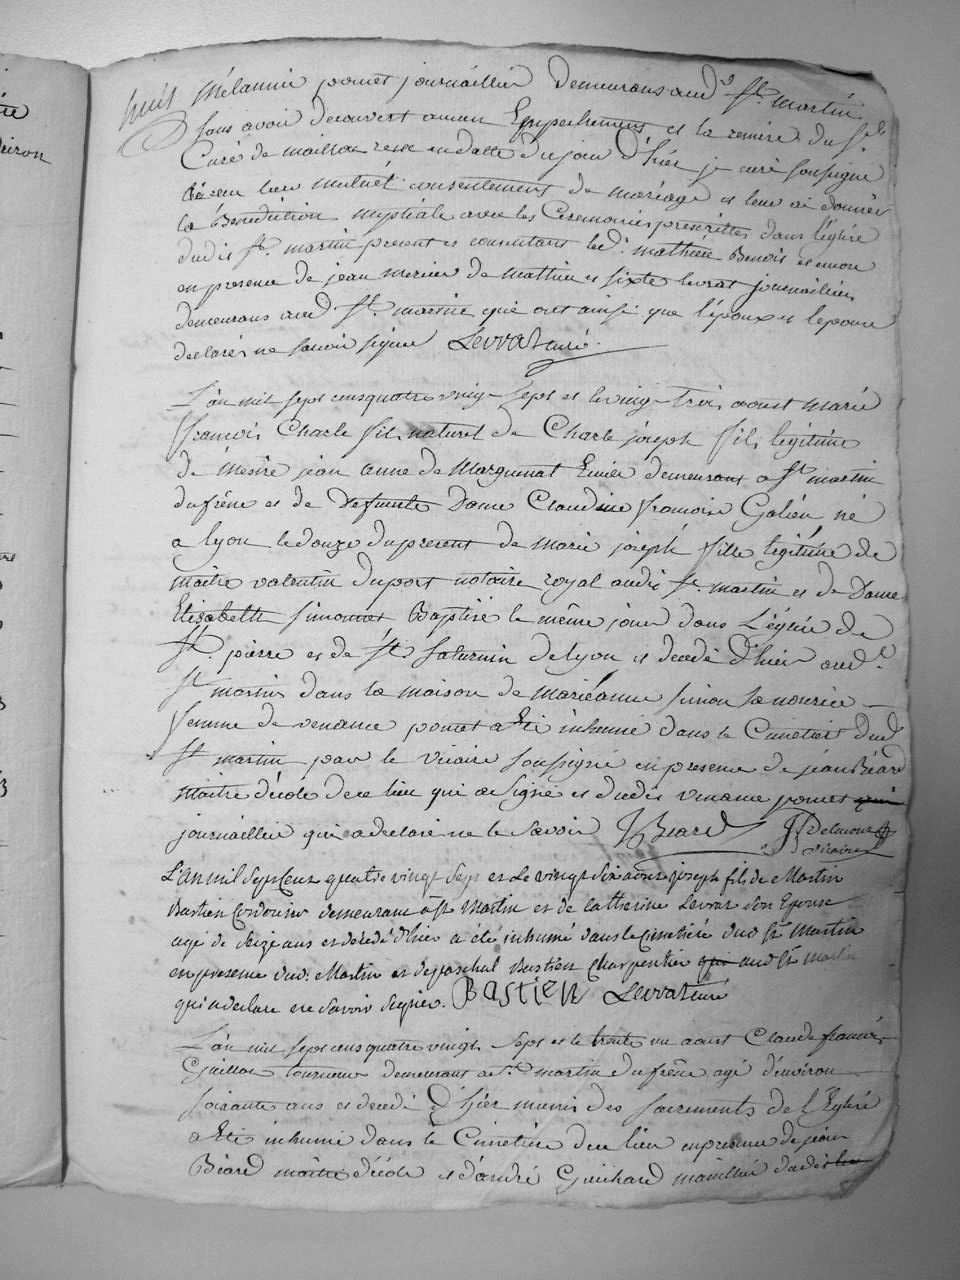 huit Mélannie pomet journaillier demeurans aud. St. martin
sans avoir decouvert aucun Empechement et la remise du Sr.
Curé de maillat en datte du jour d'hier je curé soussigné
ai recu leur mutuel consentement de mariage et leur ai donnée
la Bénédiction nuptiale avec les Ceremonies prescrittes dans l'église
dudit St. martin present et consentant led. mathieu Benoit et encore
en presence de jean mercier de mathieu et sixte levrat journailliers
demeurans aud St. martin qui ont ainsi que l'epoux et l'epouse
declarés ne savoir signer Levrat curé.
L'an mil sept cens quatre vingt sept et le vingt trois aoust marie
francois Charle fils naturel de Charle joseph fils legitime
de messire jean anne de Marguenat Ecuier demeurant a St martin
du frêne et de Defuncte Dame Claudine francoise Galien né
a lyon le douze du present de marie joseph fille legitime de
maitre valentin duport notaire royal audit St. martin et de Dame
Elisabeth Simonet Baptisé le même jour dans L'église de
St. pierre et de St. Saturnin de lyon et decedé d'hier aud.
St martin dans la maison de marieanne la nourice
femme de venance pomet a Eté inhumé dans le Cimetiere dud
St martin par le vicaire soussigné en presence de jean Béard
maitre d'école de ce lieu qui a signé et dudit venance pomet qui
journaillier qui a declaré ne le savoir J Beard Delacour
vicaire
L'an mil sept cens quatre vingt sept et le vingt six aoust joseph fils de Martin
Bastien Cordonier demeurant a St Martin et de Catherine Levrat son Epouse
agé de seize ans et decedé d'hier a été inhumé dans le cimetiére dud St martin
en presence dud. Martin et de paschal Bastien Charpentier qui aud St martin
qui a declaré ne savoir signer. Bastien Levrat curé
L'an mil sept cens quatre vingt sept et le trente un aoust Claude francois
Guillot tourneur demeurant a St. martin du frêne agé d'environ
soixante ans et decedé d'hier muni des sacrements de l'Eglise
a Eté inhumé dans le Cimetiere de ce lieu en presence de jean
Béard maitre d'école et d'andré Guichard dudit lieu